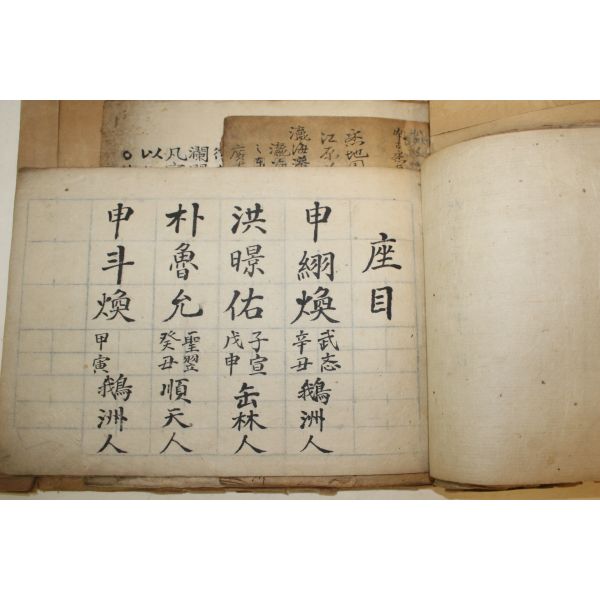 座目
申䌙煥 武忞 辛丑 鵝洲人
洪暻佑 子宣 戊申 缶林人
朴魯允 聖翌 癸丑 順天人
申斗煥 甲寅 鵝洲人
江原
瀛海
凡
以